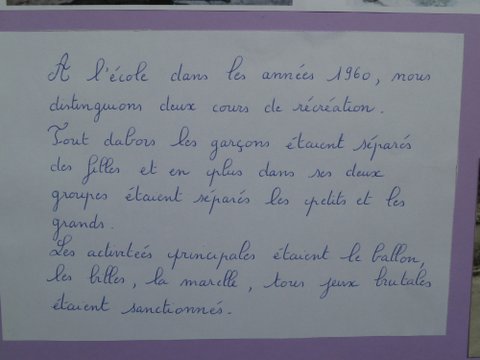 A l'école dans les années 1960, nous
distinguions deux cours de récréation.
Tout dabors les garçons étaient séparés
des filles et en plus dans ses deux
groupes étaient séparés les petits et les
grands.
Les activiteés principales étaient le ballon,
les billes, la marelle, tous jeux brutales
étaient sanctionnés.